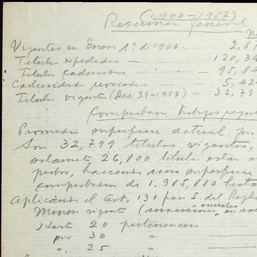 (1900-1957)
Resumen general
Vigentes en Enero 1º de 1900. — 2,81
Titulos expedidos — 120,34
Titulos caducados — 95,84
Caducidades revocadas — 5,42
Titulos vigentes (Dic 31-1957) — 32,79
Comprueban trabajos regul
Promedio superficie actual por
Son 32,799 titulos vigentes,
solamente 26,000 titulos estan a
superficie
comprueban de 1,985,880 hecta
Aplicando el Art. 130 fan I. del Regla
Minero vigente (inversiones anuales en
Hasta 20 pertenencias
por 30 "
" 25 "